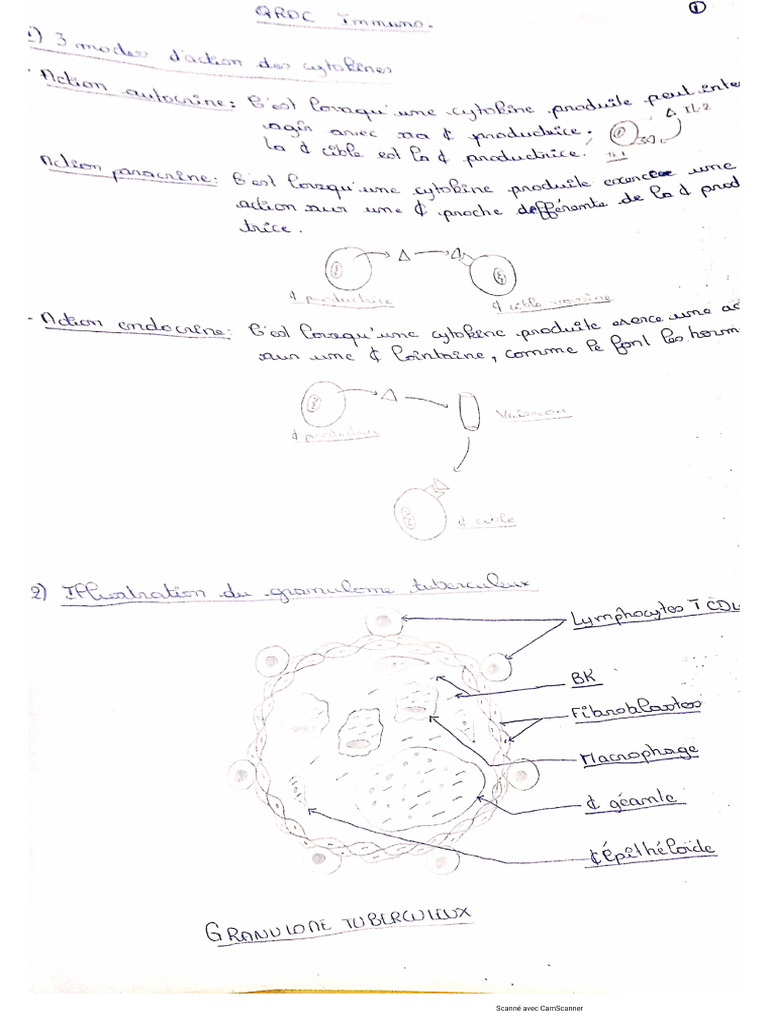 QRDC Immuno.
1
1) 3 modes d'action des cytokines
- Action autocrine : C'est lorsqu'une cytokine produite peut inte
ragir avec sa ¢ productrice.
IL-2
la ¢ cible est la ¢ productrice.
Action paracrine : C'est lorsqu'une cytokine produite exerce une
action sur une ¢ proche différente de la ¢ prod
trice.
¢ productrice
¢ cible voisine
- Action endocrine : C'est lorsqu'une cytokine produite exerce une ac
sur une ¢ lointaine, comme le font les horm
Vaisseau
¢ cible
2) Illustration du granulome tuberculeux
Lymphocytes T CD4
BK
Fibroblastes
Macrophage
¢ géante
¢ épithéloïde
GRANULOME TUBERCULEUX
Scanné avec CamScanner